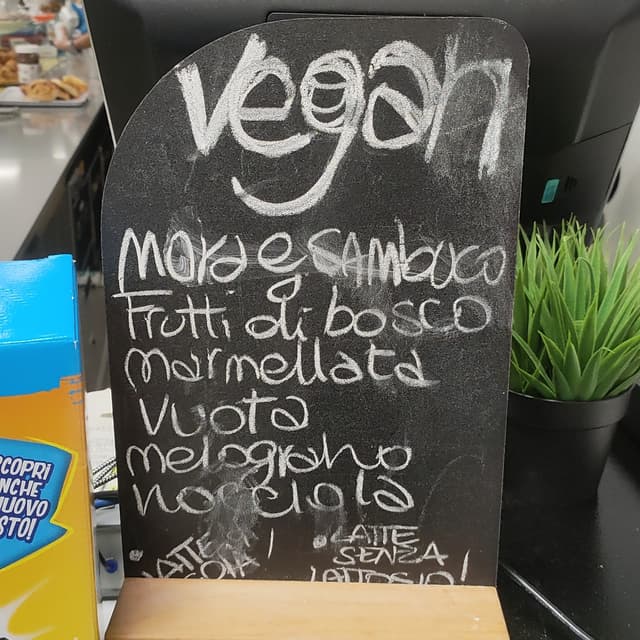 Vegan
Mora e SAMbuco
Frutti di bosco
Marmellata
Vuota
melograno
nocciola
LATTE !
• LATTE
SENZA
LATTOSIO!
SCOPRI
ANCHE
NUOVO